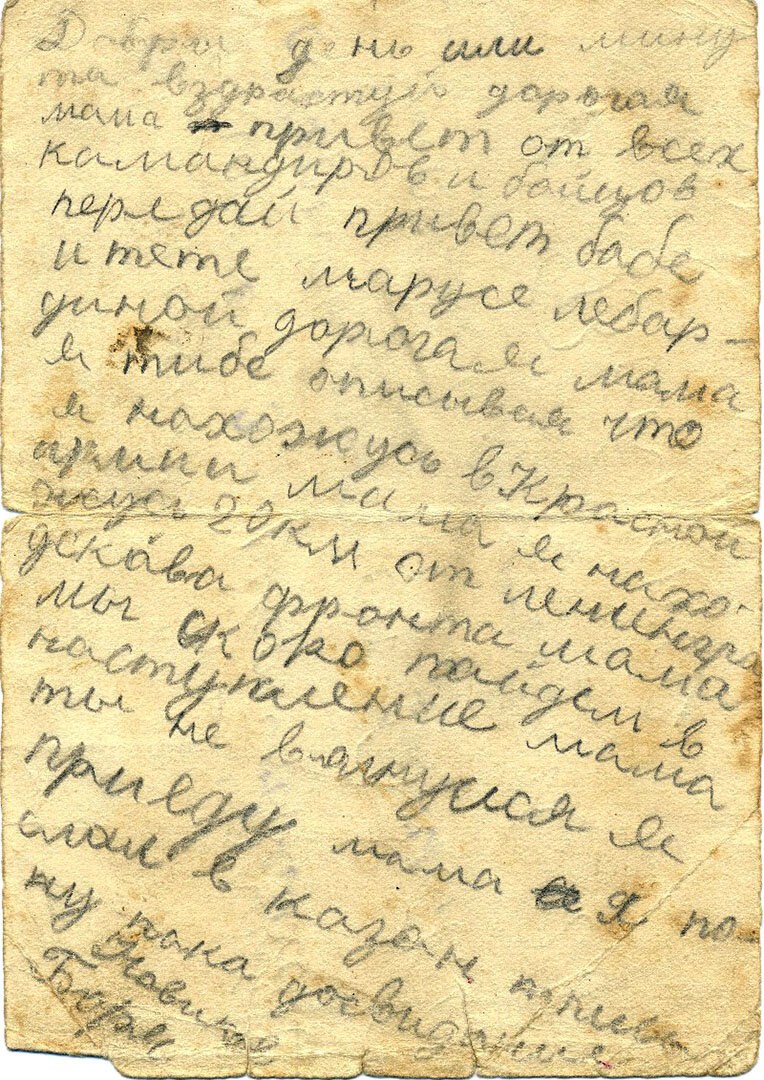 Добрый день или мину
та вздраствуй дорогая
мама привет от всех
камандиров и бойцов
передай привет бабе
и тете марусе лебар-
диной дорогая мама
я тибе описывая что
я нахожусь в Красной
армии мама я нахо-
жусь 20 км от ленингра
дскава фронта мама
мы скоро пайдем в
наступление мама
ты не валнуйся я
приеду мама а я по-
слал в казан
ну пока досвидания
Новиков
Боря